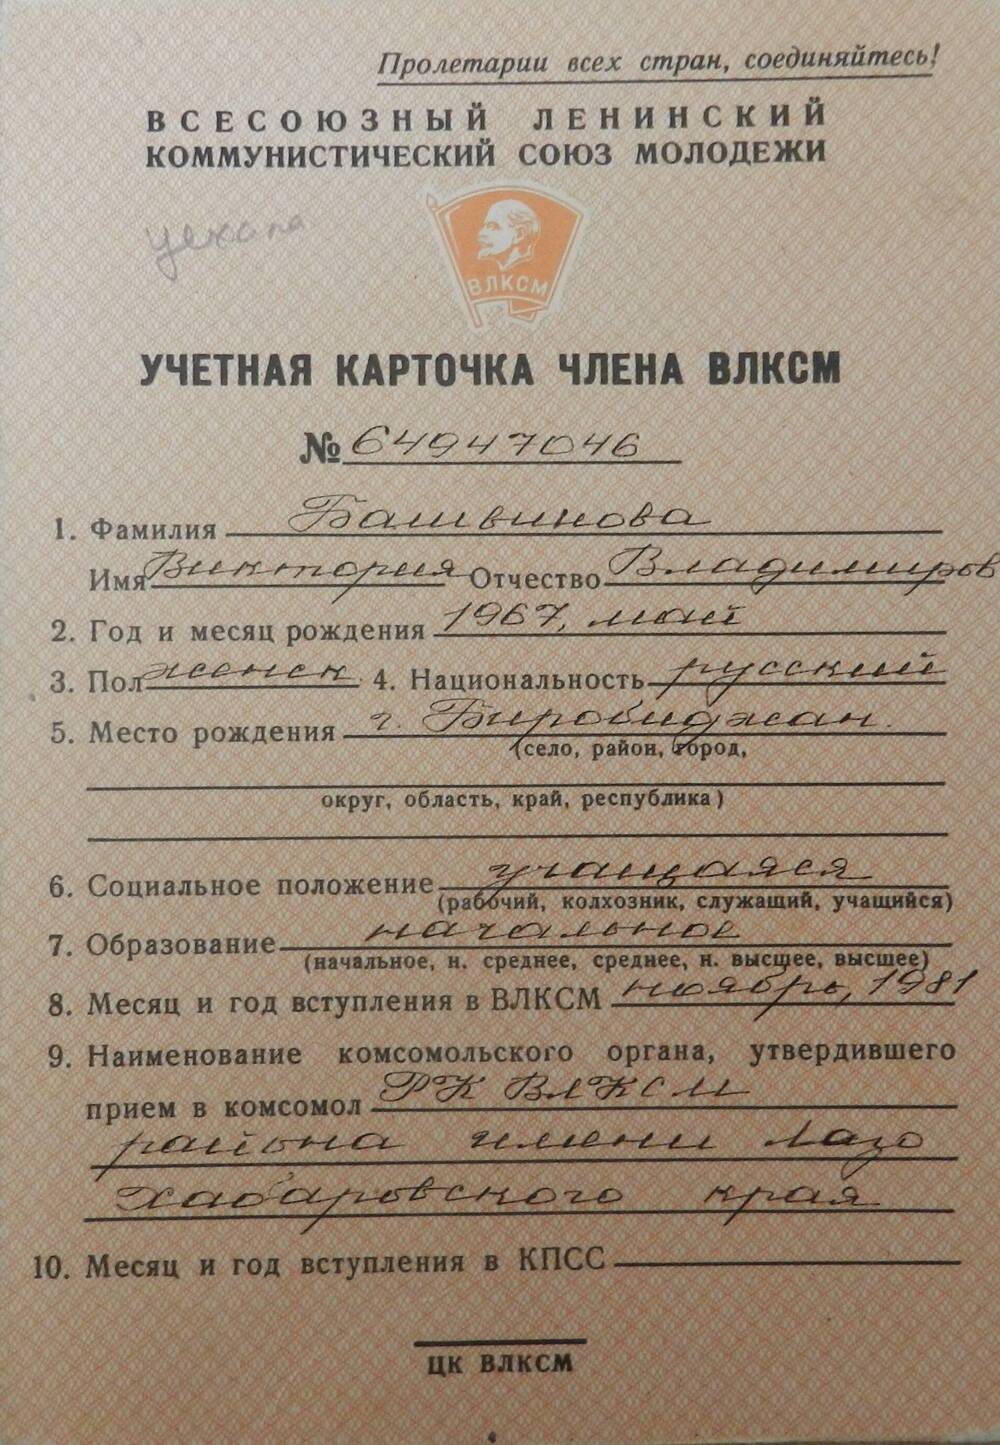 Пролетарии всех стран, соединяйтесь!
ВСЕСОЮЗНЫЙ ЛЕНИНСКИЙ
КОММУНИСТИЧЕСКИЙ СОЮЗ МОЛОДЕЖИ
ВЛКСМ
УЧЕТНАЯ КАРТОЧКА ЧЛЕНА ВЛКСМ
№ 64947046
1. Фамилия Башвинова
Имя Виктория Отчество Владимиров
2. Год и месяц рождения 1967, май
3. Пол женск 4. Национальность русский
5. Место рождения г. Биробиджан.
(село, район, город,
округ, область, край, республика)
6. Социальное положение учащаяся
(рабочий, колхозник, служащий, учащийся)
7. Образование начальное
(начальное, н. среднее, среднее, н. высшее, высшее)
8. Месяц и год вступления в ВЛКСМ ноябрь, 1981
9. Наименование комсомольского органа, утвердившего
прием в комсомол РК ВЛКСМ
района имени Лазо
Хабаровского края
10. Месяц и год вступления в КПСС
ЦК ВЛКСМ